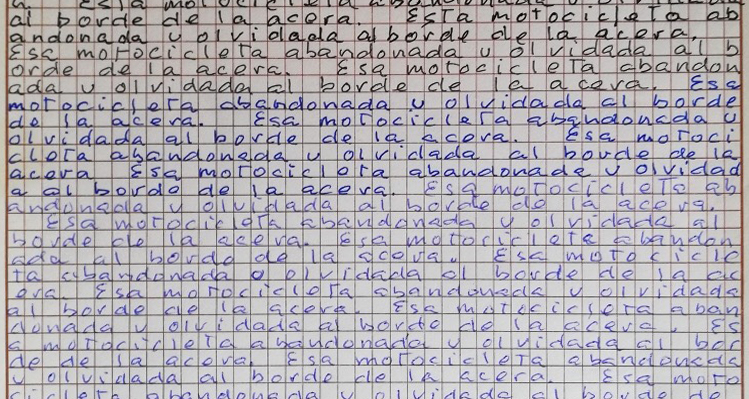 a. Esa motocicleta abandonada y olvidada
al borde de la acera. Esta motocicleta ab
andonada y olvidada al borde de la acera.
Esa motocicleta abandonada y olvidada al b
orde de la acera. Esa motocicleta abandon
ada y olvidada al borde de la acera. Esa
motocicleta abandonada y olvidada al borde
de la acera. Esa motocicleta abandonada y
olvidada al borde de la acera. Esa motoci
cleta abandonada y olvidada al borde de la
acera Esa motocicleta abandonada y olvidad
a al borde de la acera. Esa motocicleta ab
andonada y olvidada al borde de la acera.
Esa motocicleta abandonada y olvidada al
borde de la acera. Esa motocicleta abandon
ada al borde de la acera. Esa motocicle
ta abandonada o olvidada al borde de la ac
era. Esa motocicleta abandonada y olvidada
al borde de la acera. Esa motocicleta aban
donada y olvidada al borde de la acera. Es
a motocicleta abandonada y olvidada al bor
de de la acera. Esa motocicleta abandonada
y olvidada al borde de la acera. Esa moto
cicleta abandonada y olvidada al borde de